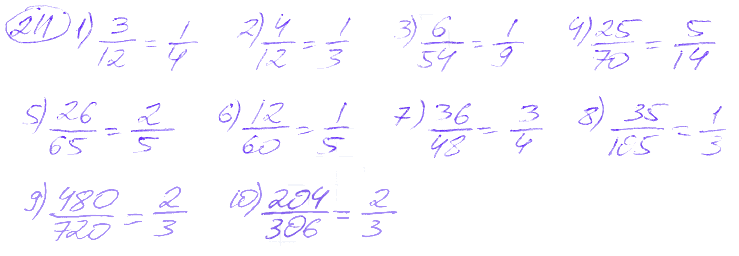 211 1) 3/12 = 1/4 2) 4/12 = 1/3 3) 6/54 = 1/9 4) 25/70 = 5/14
5) 26/65 = 2/5 6) 12/60 = 1/5 7) 36/48 = 3/4 8) 35/105 = 1/3
9) 480/720 = 2/3 10) 204/306 = 2/3